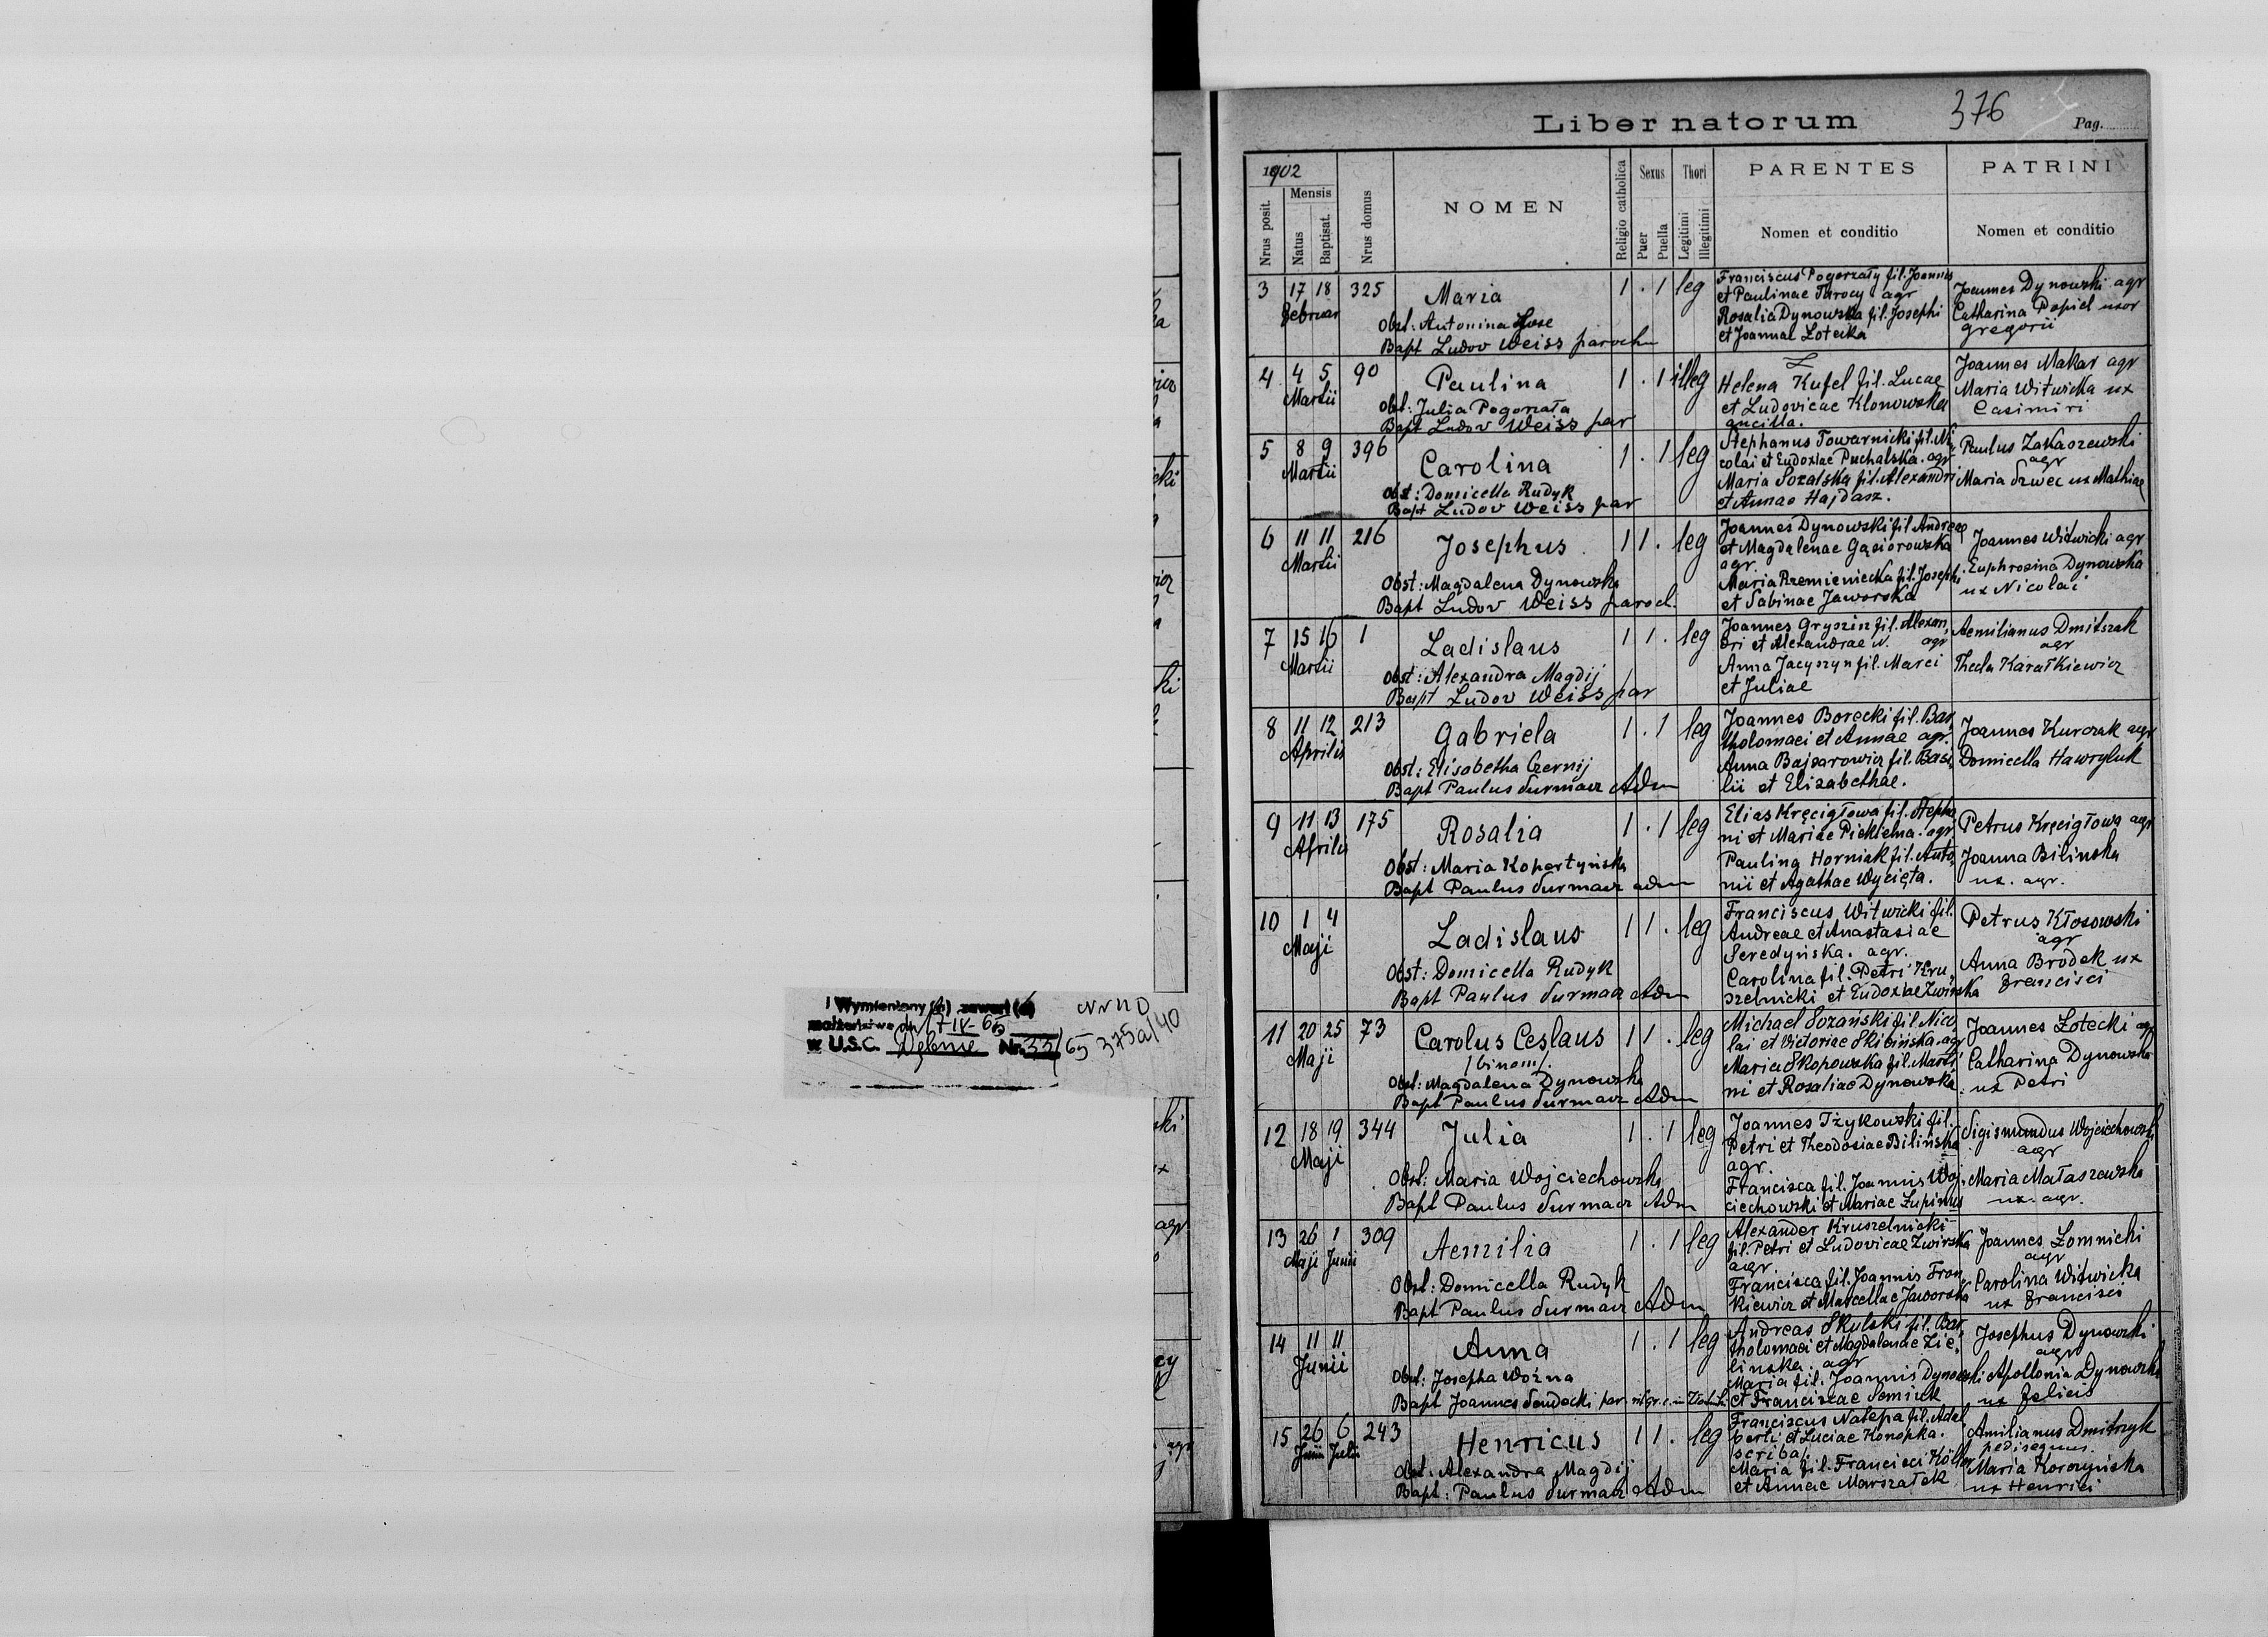 Liber natorum
376
Pag.
1902
Nrus posit.
Mensis
Natus
Baptisat.
Nrus domus
NOMEN
Religio catholica
Sexus
Puer
Puella
Thori
Legitimi
Illegitimi
PARENTES
Nomen et conditio
PATRINI
Nomen et conditio
3 17 18 325 Maria 1 . 1 leg
Februar
Obst: Antonina
Bapt Ludov Weiss paroch
Franciscus Pogorzały fil. Joannis
et Paulinae Turocy agr
Rosalia Dynowska fil. Josephi
et Joannae Łotecka
Joannes Dynowski agr
Catharina Popiel uxor
Gregorii
4 4 5 90 Paulina 1 . 1 illeg
Martii
Obst: Julia Pogorzała
Bapt Ludov Weiss par
Helena Kufel fil. Lucae
et Ludovicae Klonowska
ancilla.
Joannes Makar agr
Maria Witwicka ux
Casimiri
5 8 9 396 Carolina 1 . 1 leg
Martii
Obst: Domicella Rudyk
Bapt Ludov Weiss par
Stephanus Towarnicki fil. Ni
colai et Eudoxiae Puchalska. agr
Maria Sozalska fil. Alexandri
et Annae Hajdasz.
Paulus Zakaszewski
agr
Maria Szwec ux Mathiae
6 11 11 216 Josephus 1 1 . leg
Martii
Obst: Magdalena Dynowska
Bapt Ludov Weiss paroch.
Joannes Dynowski fil Andreae
et Magdalenae Gąsiorowska
agr.
Maria Rzemieniecka fil. Josephi
et Sabinae Jaworska
Joannes Witwicki agr
Euphrosina Dynowska
ux Nicolai
7 15 16 1 Ladislaus 1 1 . leg
Martii
Obst: Alexandra Magdij
Bapt Ludov Weiss par
Joannes Gryszin fil. Alexan,
dri et Alexandrae N. agr
Anna Jacyszyn fil. Marci
et Juliae
Aemilianus Dmitszak
agr
Thecla Karatkiewicz
8 11 12 213 Gabriela 1 . 1 leg
Aprilis
Obst: Elisabetha Czernij
Bapt Paulus Surmacz Adm
Joannes Borecki fil. Bar,
tholomaei et Annae agr.
Anna Bajzarowicz fil. Basi,
lii et Elizabethae.
Joannes Kurczak agr
Domicella Hawryluk
9 11 13 175 Rosalia 1 . 1 leg
Aprilis
Obst: Maria Kopertyńska
Bapt Paulus Surmacz adm
Elias Kręcigłowa fil. Stepha,
ni et Mariae Piekielna. agr.
Paulina Horniak fil. Anto,
nii et Agathae Wycięta.
Petrus Kręcigłowa agr
Joanna Bilinska
ux. agr.
10 1 4 Ladislaus 1 1 . leg
Maji
Obst: Domicella Rudyk
Bapt Paulus Surmacz Adm
Franciscus Witwicki fil.
Andreae et Anastasiae
Seredyńska. agr.
Carolina fil. Petri Kru,
szelnicki et Eudoxiae Zwirska
Petrus Kłosowski
agr
Anna Brodek ux
Francisci
11 20 25 73 Carolus Ceslaus 1 1 . leg
Maji
/binom/.
Obst: Magdalena Dynowska
Bapt Paulus Surmacz Adm
Michael Sozański fil. Nico,
lai et Victoriae Skibińska. agr
Maria Skopowska fil. Marti,
ni et Rosaliae Dynowska
Joannes Łotecki agr
Catharina Dynowska
ux Petri
12 18 19 344 Julia 1 . 1 leg
Maji
Obst: Maria Wojciechowska
Bapt Paulus Surmacz Adm
Joannes Iżykowski fil.
Petri et Theodosiae Bilińska
agr.
Francisca fil. Joannis Woj,
ciechowski et Mariae Łupinus
Sigismundus Wojciechowski
agr
Maria Mataszewska
ux. agr.
13 26 1 309 Aemilia 1 . 1 leg
Maji Junii
Obst: Domicella Rudyk
Bapt Paulus Surmacz Adm
Alexander Kruszelnicki
fil. Petri et Ludovicae Zwirska
agr.
Francisca fil. Joannis Fran,
kiewicz et Marcellae Jaworska
Joannes Łomnicki
agr
Carolina Witwicka
ux Francisci
14 11 11 Anna 1 . 1 leg
Junii
Obst: Josepha Woźna
Bapt Joannes Sendecki par. rit. gr. c. in
Andreas Skulski fil. Bar,
tholomaei et Magdalenae Zie,
linska. agr
Maria fil. Joannis Dynowski
et Franciscae Semicek
Josephus Dynowski
agr
Apollonia Dynowska
ux Felicis
15 26 6 243 Henricus 1 1 . leg
Junii Julii
Obst: Alexandra Magdij
Bapt: Paulus Surmacz Adm
Franciscus Natepa fil. Adal,
berti et Luciae Konopka.
/scriba/
Maria fil. Francisci Köller
et Annae Marszałek
Amilianus Dmitrzyk
pedisequus.
Maria Korczyńska
ux Henrici
I Wymieniony (a) zawarł (a)
małżeństwo dn 17-IV-65
w U.S.C. Dębnie Nr. 33/65
375a/40